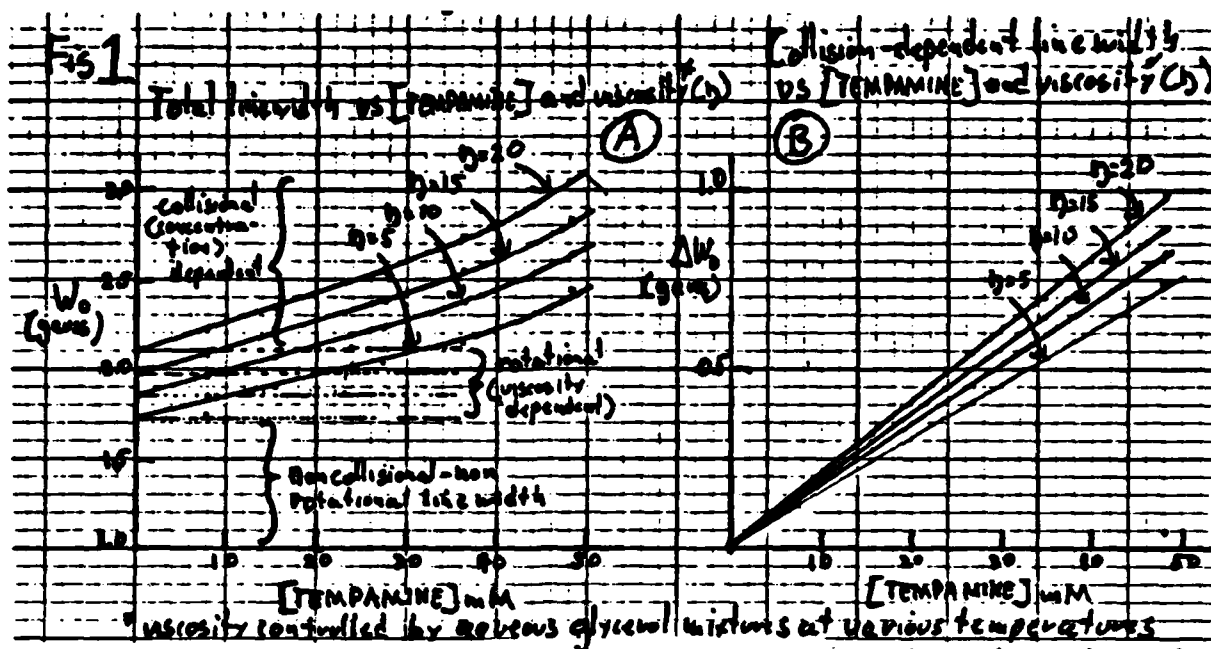 Fig 1
Total linewidth vs [TEMPAMINE] and viscosity*(η)
A
η=20
η=15
η=10
η=5
3.0
2.5
2.0
1.5
1.0
W₀
(gauss)
collisional
(concentra-
tion)
dependent
rotational
(viscosity
dependent)
Noncollisional-non
rotational line width
10 20 30 40 50
[TEMPAMINE] mM
Collision-dependent linewidth
vs [TEMPAMINE] and viscosity*(η)
B
η=20
η=15
η=10
η=5
1.0
0.5
ΔW₀
(gauss)
10 20 30 40 50
[TEMPAMINE] mM
*viscosity controlled by aqueous glycerol mixtures at various temperatures